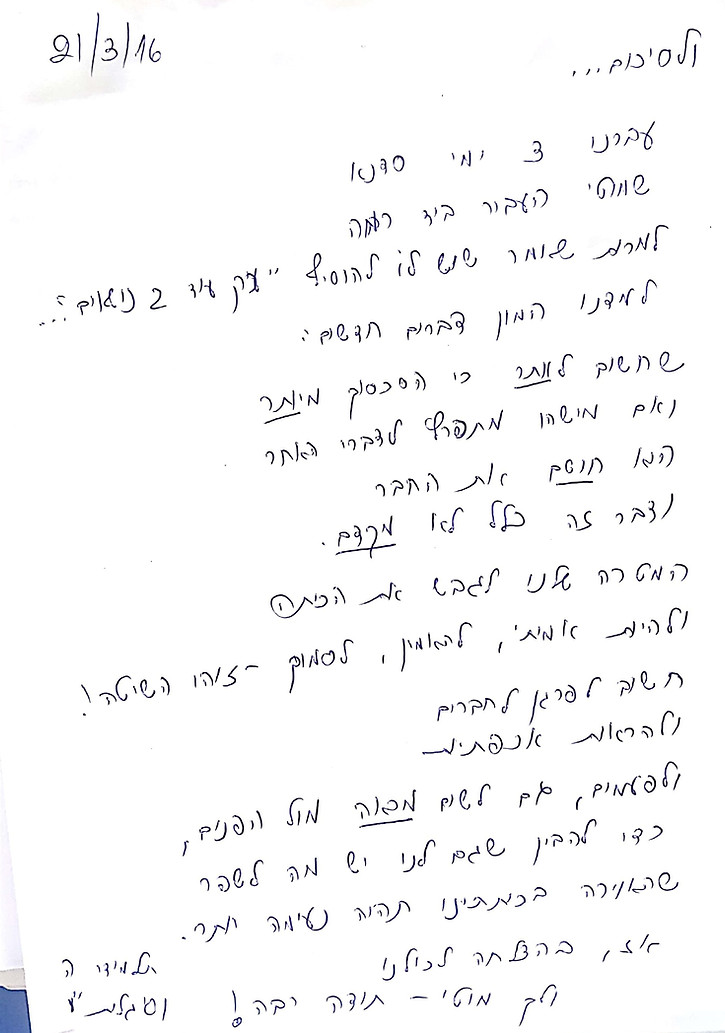 21/3/16
ולסיכום...
עברנו 3 ימי סדנא
שמוטי העביר ביד רמה
למרות שאומר שיש לו להוסיף "רק עוד 2 נושאים"...
למדנו המון דברים חדשים:
שחשוב לאתר כי הסכסוך מיותר
ואם מישהו מתפרץ לדברי האחר
הוא חוסם את החבר
ודבר זה כלל לא מקדם.
המטרה שלנו לגבש את הכיתה
ולהיות אמיתי, להאמין, לסמוך - זוהי השיטה!
חשוב לפרגן לחברים
ולהראות אכפתיות
ולפעמים, גם לשים מראה מול הפנים,
כדי להבין שגם לנו יש מה לשפר
שהאוירה בכיתתינו תהיה נעימה יותר.
אז, בהצלחה לכולנו
ולך מוטי - תודה רבה!
תלמידי ה